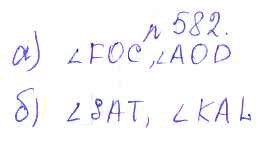 № 582.
а) ∠FOC, ∠AOD
б) ∠SAT, ∠KAL